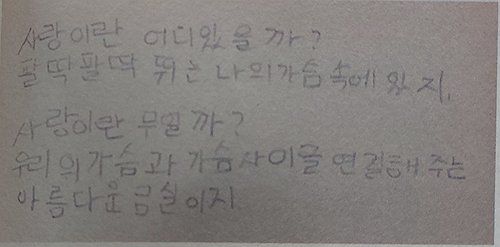 사랑이란 어디있을까?
팔딱팔딱 뛰는 나의가슴속에 있지.
사랑이란 무얼까?
우리의가슴과 가슴사이를 연결해 주는
아름다운금실이지